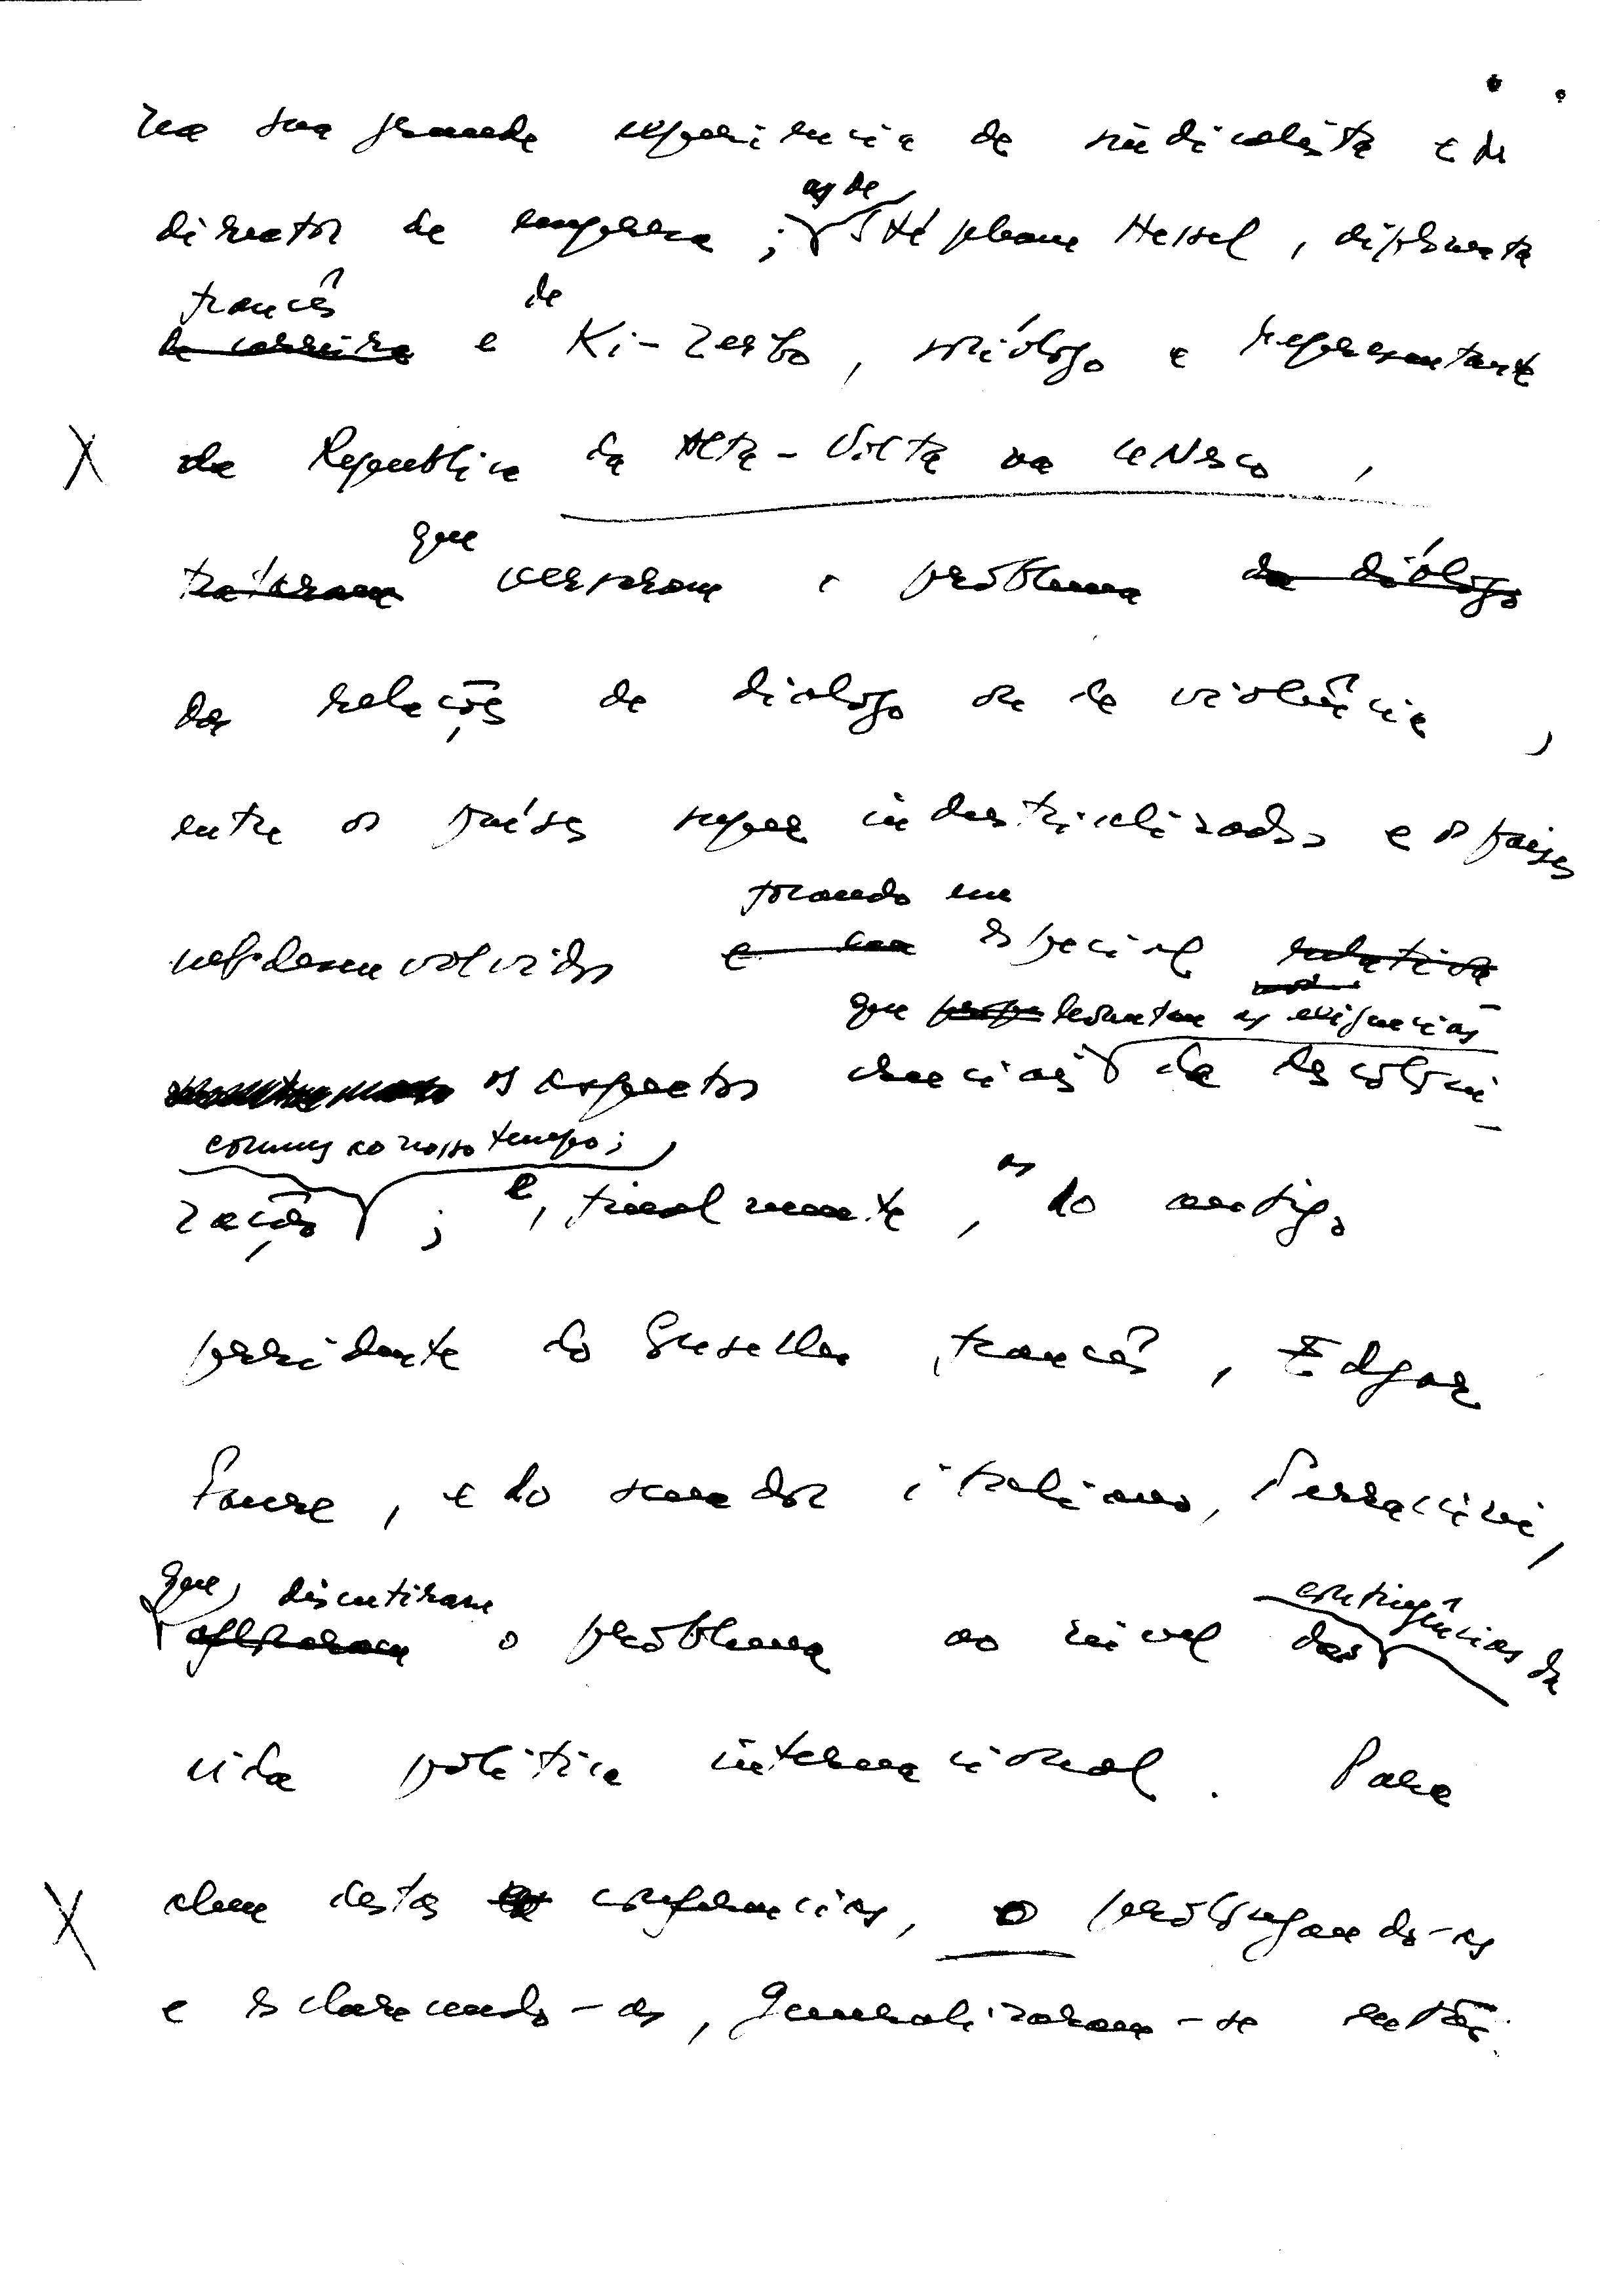 na sua grande experiencia de sindicalista e de
as de
director de empresa ; Stéphane Hessel , diplomata
francês de
de carreira e Ki-Zerbo, sociólogo e representante
X da Republica da Alta-Volta na UNESCO ,
que
trataram versaram o problema do diálogo
das relações de dialogo ou de violência ,
entre os países super industrializados e os países
focando em
subdesenvolvidos e em especial relativa
que levantam as exigencias
os aspectos cruciais da descoloni-
comuns ao nosso tempo;
zação ; e, finalmente , as do antigo
presidente do Conselho francês , Edgar
Faure , e do senador italiano, Terracini,
que, discutiram contingências da
o problema ao nível das
vida politica internacional . Para
X alem destas conferencias, o prolongando-as
e esclarecendo-as , generalizaram-se então